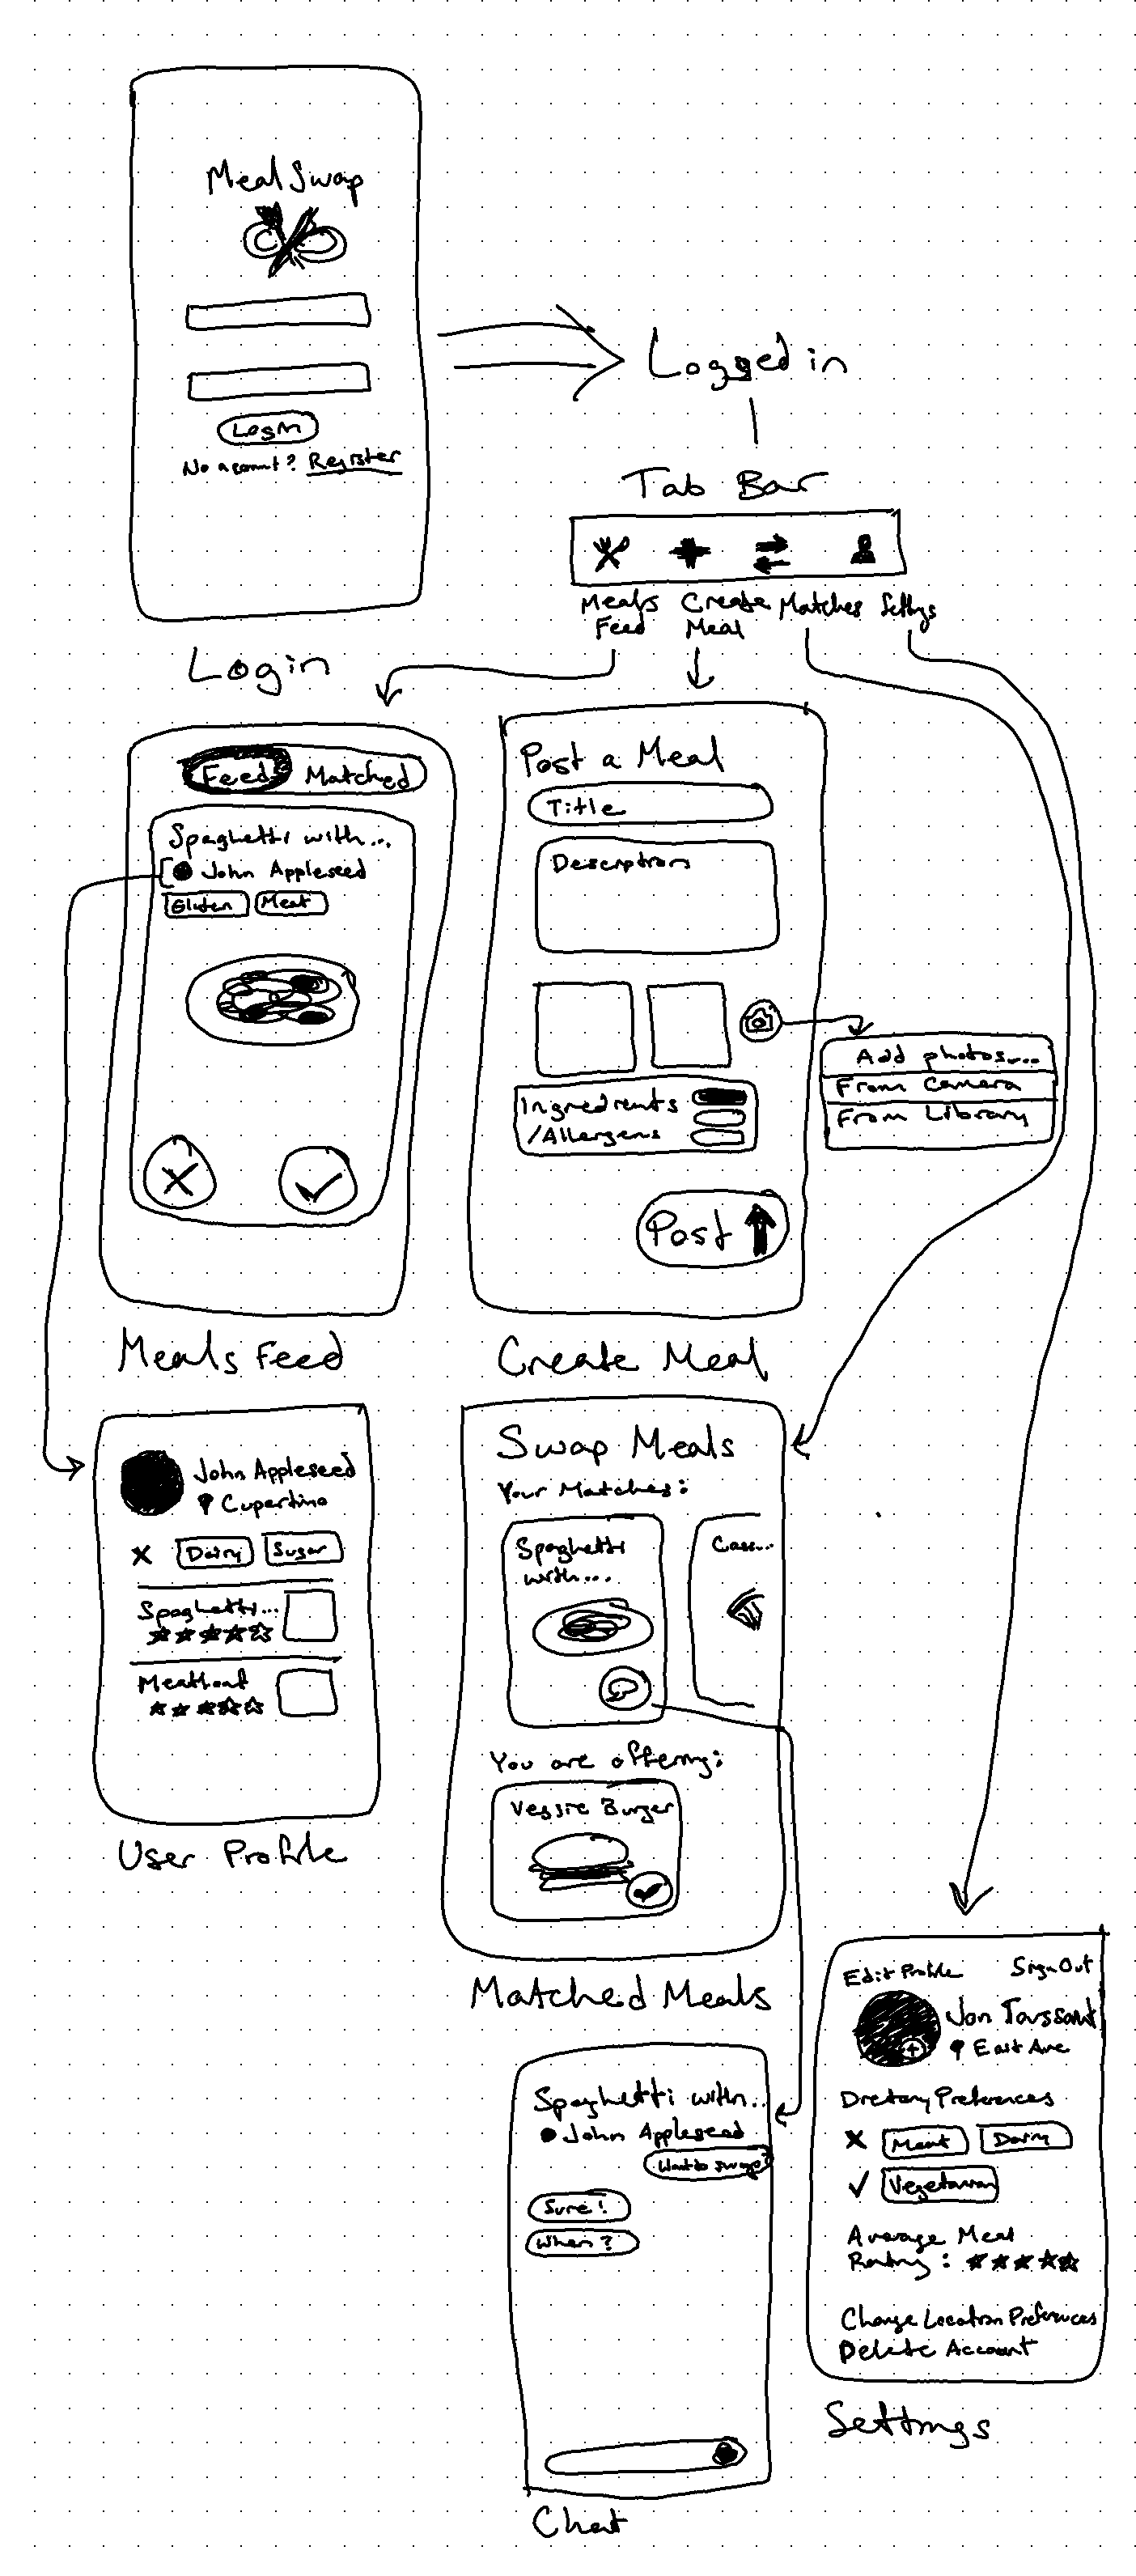 MealSwap
Login
No account? Register
Login
Logged in
Tab Bar
Meals Feed
Create Meal
Matches
Settings
Feed
Matched
Spaghetti with...
John Appleseed
Gluten
Meat
Meals Feed
Post a Meal
Title
Description
Ingredients
/Allergens
Post
Create Meal
Add photos....
From Camera
From Library
John Appleseed
Cupertino
Dairy
Sugar
Spaghetti...
Meatloaf
User Profile
Swap Meals
Your Matches:
Spaghetti
with...
You are offering:
Veggie Burger
Matched Meals
Spaghetti with..
John Appleseed
Want to swap
Sure!
When?
Chat
Edit Profile
Sign Out
Jon Toussaint
East Ave
Dietary Preferences
Meat
Dairy
Vegetarian
Average Meal
Rating:
Change Location Preferences
Delete Account
Settings